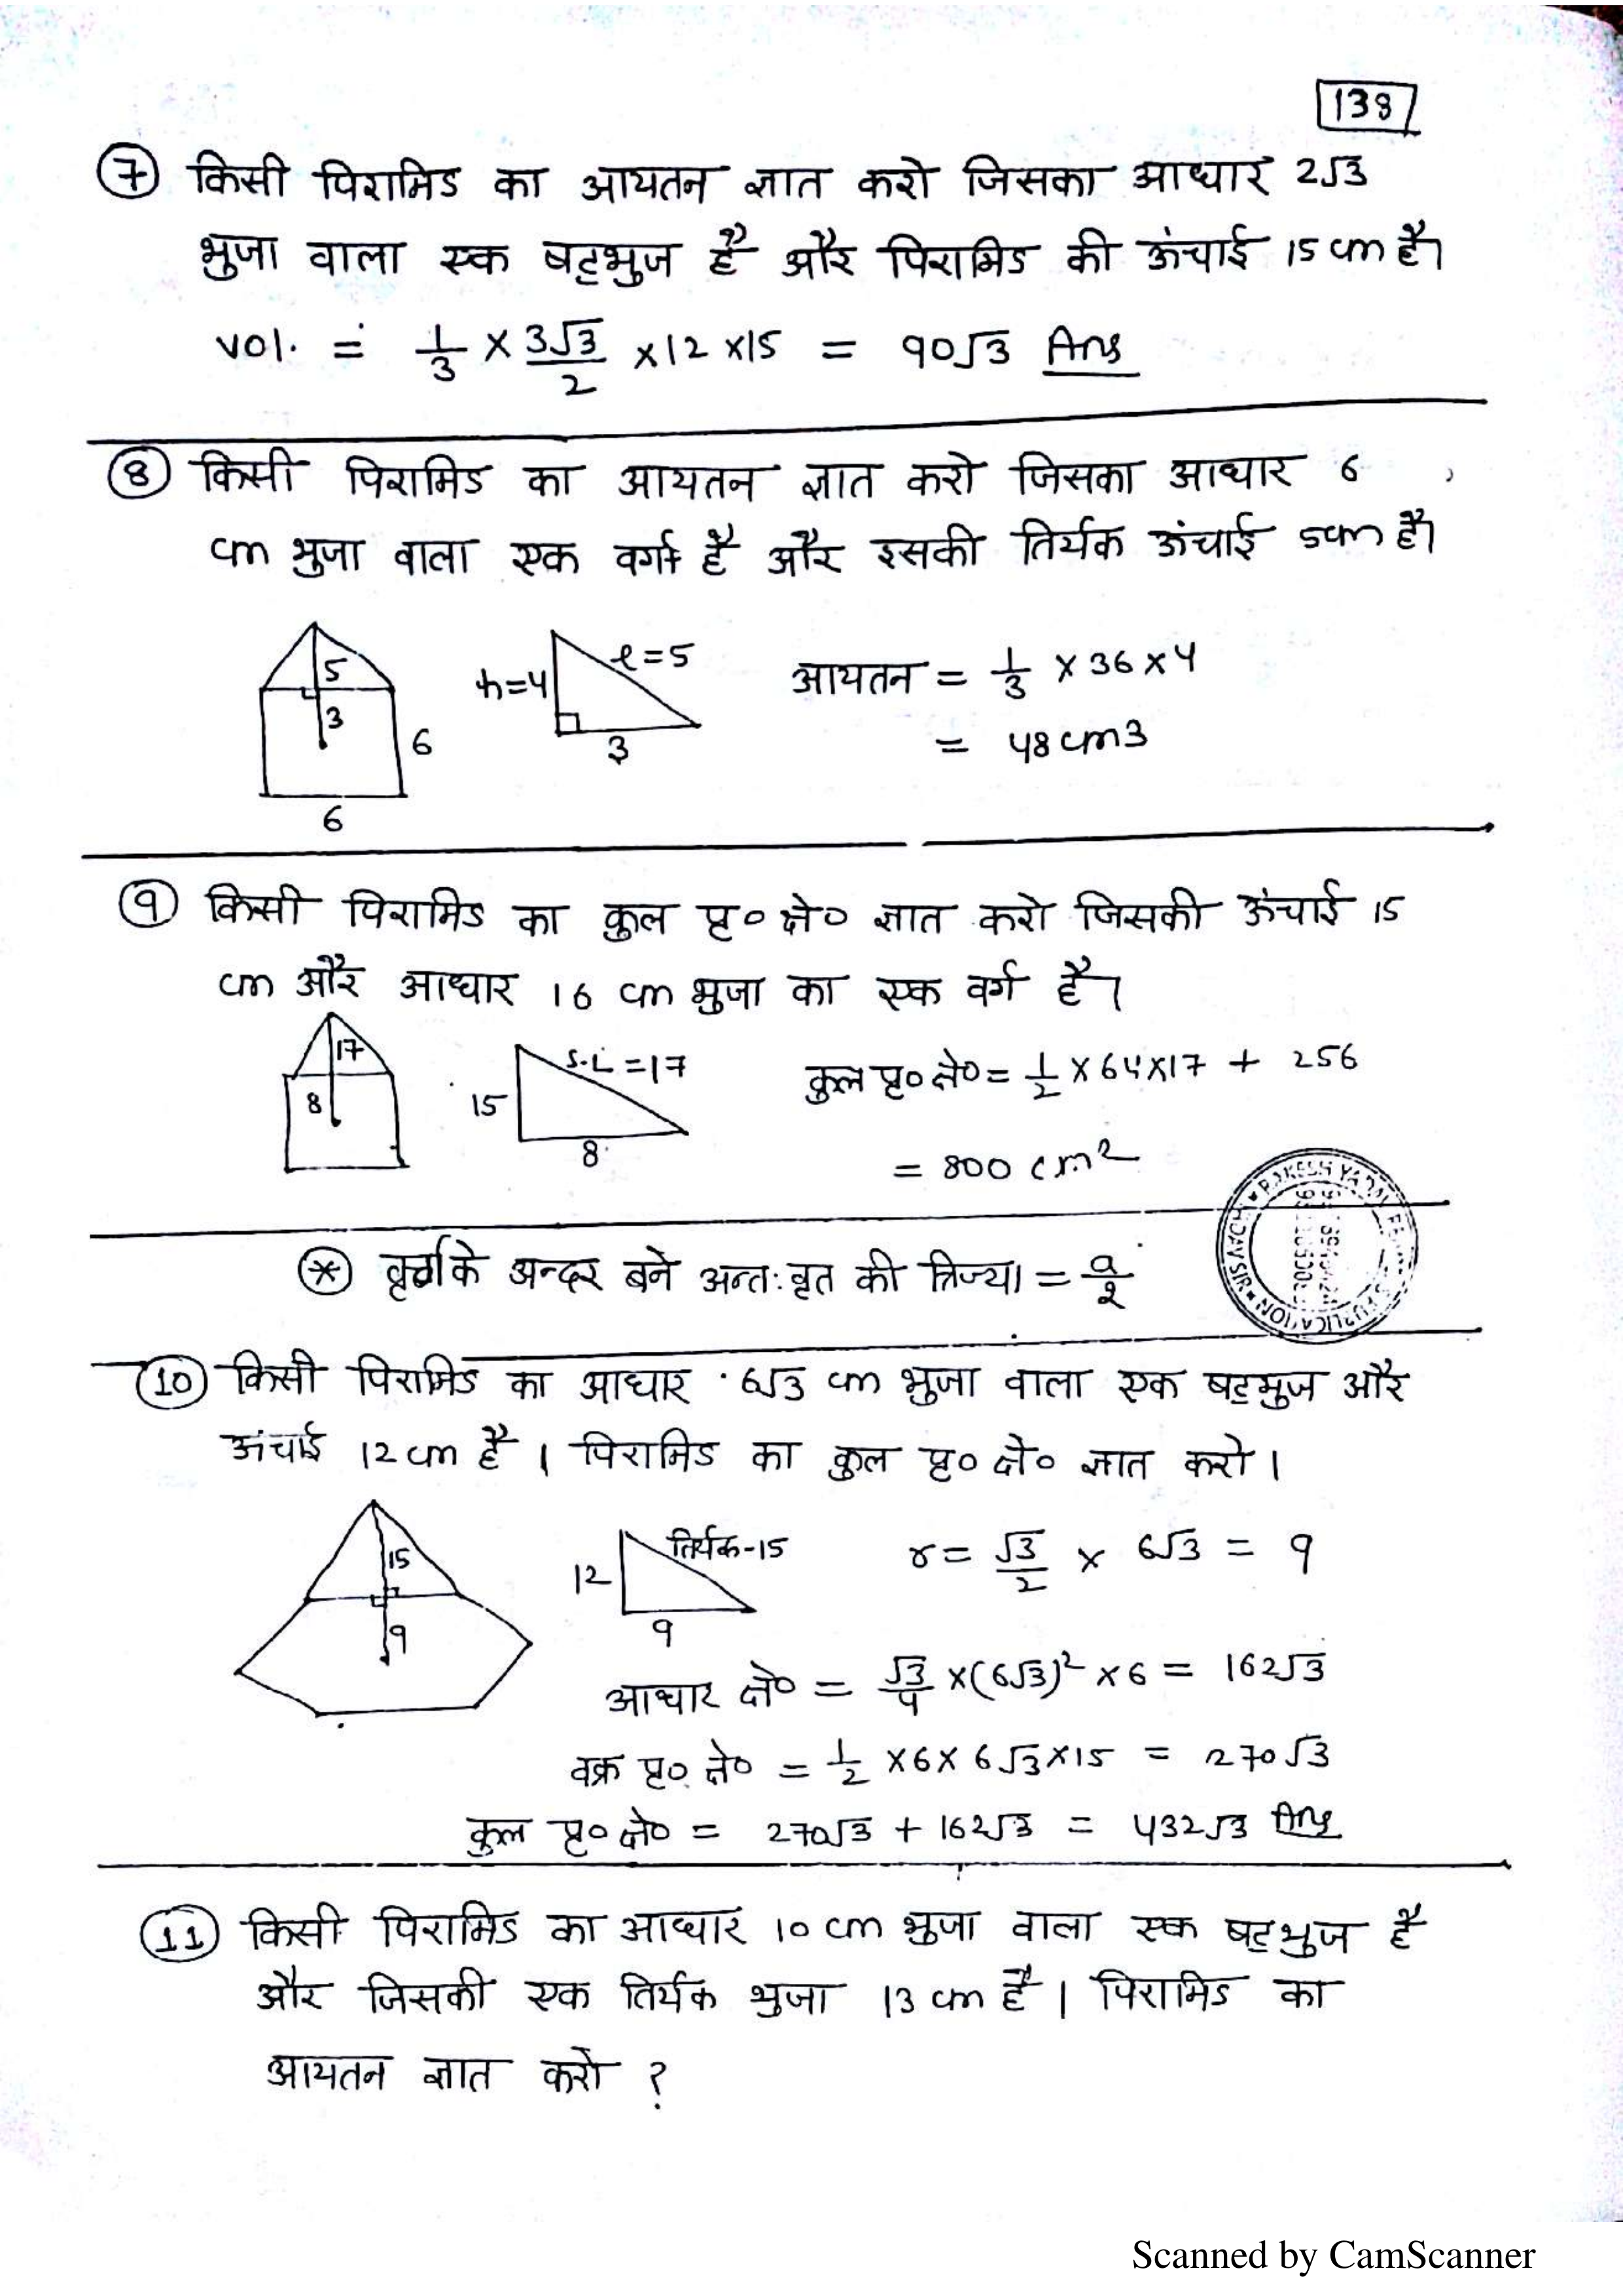 138
⑦ किसी पिरामिड का आयतन ज्ञात करो जिसका आधार 2√3
भुजा वाला एक षट्भुज है और पिरामिड की ऊंचाई 15 cm है।
vol. = 1/3 × 3√3/2 ×12 ×15 = 90√3 Ans
⑧ किसी पिरामिड का आयतन ज्ञात करो जिसका आधार 6
cm भुजा वाला एक वर्ग है और इसकी तिर्यक ऊंचाई 5cm है।
5
3
6
6
h=4
l=5
3
आयतन = 1/3 × 36 × 4
= 48 cm3
⑨ किसी पिरामिड का कुल पृ० क्षे० ज्ञात करो जिसकी ऊंचाई 15
cm और आधार 16 cm भुजा का एक वर्ग है।
17
8
15
S.L = 17
8
कुल पृ० क्षे० = 1/2 × 64 × 17 + 256
= 800 cm²
RAKESH YADAV PUBLICATION
⊛ के अन्दर बने अन्तःवृत की त्रिज्या = a/2
⑩ किसी पिरामिड का आधार 6√3 cm भुजा वाला एक षट्भुज और
ऊंचाई 12 cm है । पिरामिड का कुल पृ० क्षे० ज्ञात करो ।
15
9
12
तिर्यक-15
9
r = √3/2 × 6√3 = 9
आधार क्षे० = √3/4 ×(6√3)² × 6 = 162√3
वक्र पृ० क्षे० = 1/2 ×6× 6√3×15 = 270√3
कुल पृ० क्षे० = 270√3 + 162√3 = 432√3 Ans
⑪ किसी पिरामिड का आधार 10 cm भुजा वाला एक षट्भुज है
और जिसकी एक तिर्यक भुजा 13 cm है । पिरामिड का
आयतन ज्ञात करो ?
Scanned by CamScanner